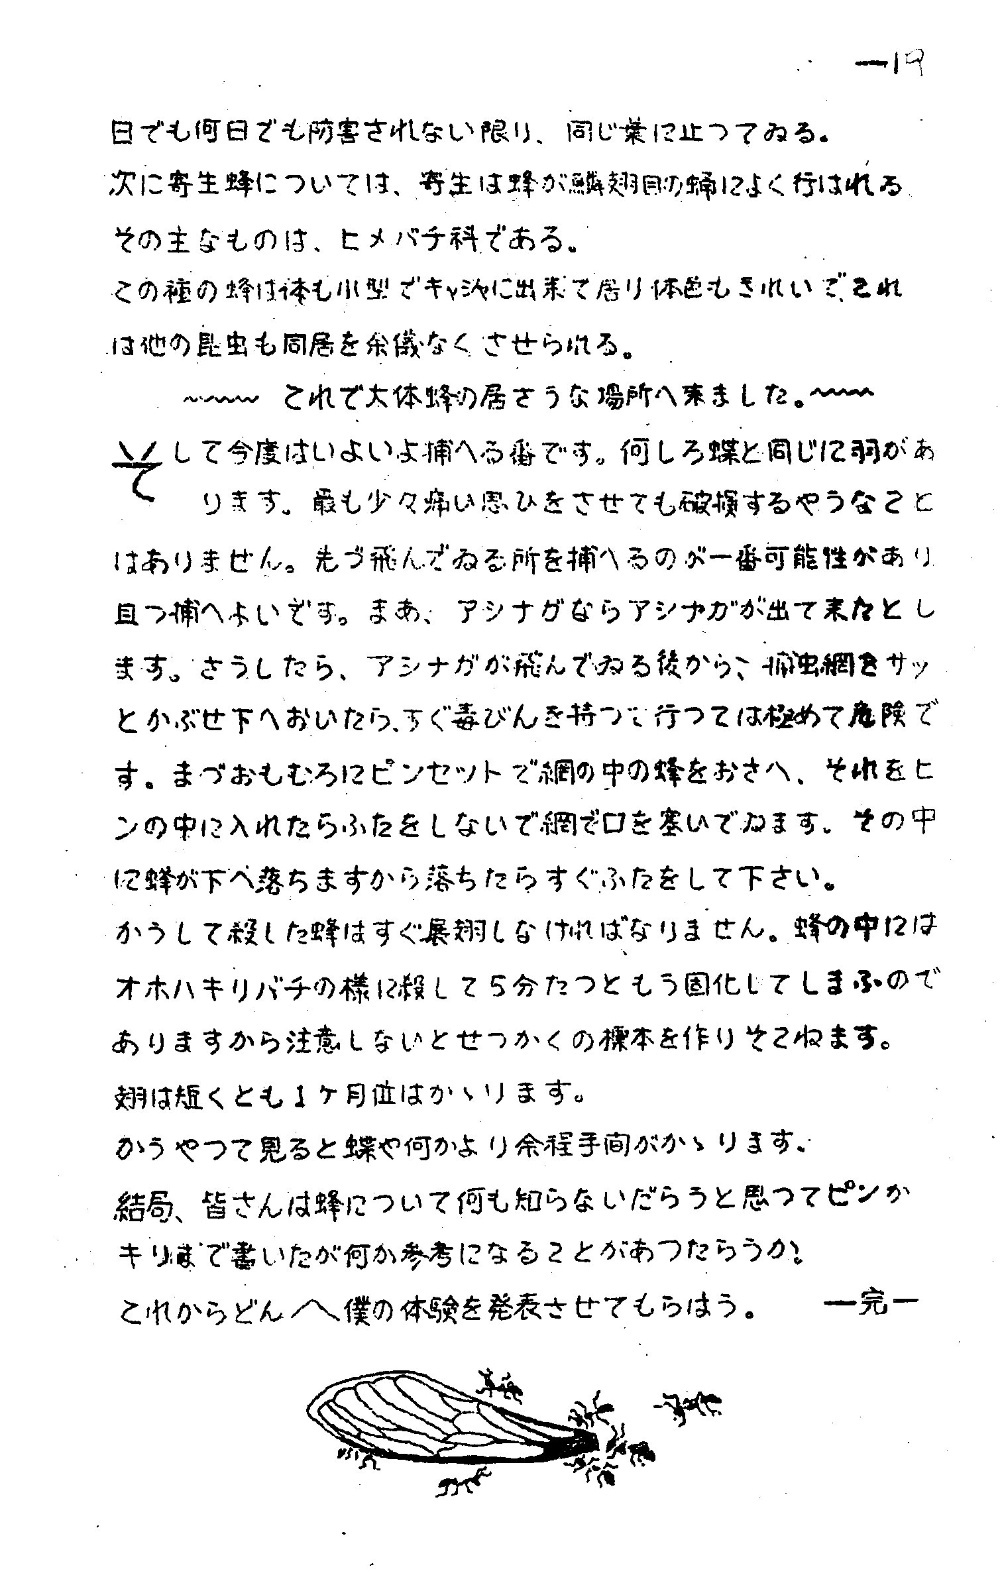 —19
日でも何日でも防害されない限り、同じ葉に止つてゐる。
次に寄生蜂については、寄生は蜂が鱗翅目の蛹によく行はれる
その主なものは、ヒメバチ科である。
この種の蜂は体も小型でキャシャに出来て居り体色もきれいで、これ
は他の昆虫も同居を余儀なくさせられる。
〜〜〜 これで大体蜂の居さうな場所へ来ました。〜〜〜
そして今度はいよいよ捕へる番です。何しろ蝶と同じに羽があ
ります。最も少々痛い思ひをさせても破損するやうなこと
はありません。先づ飛んでゐる所を捕へるのが一番可能性があり
且つ捕へよいです。まあ、アシナガならアシナガが出て来たとし
ます。さうしたら、アシナガが飛んでゐる後から、捕虫網をサッ
とかぶせ下へおいたら、すぐ毒びんを持つて行つては極めて危険で
す。まづおもむろにピンセットで網の中の蜂をおさへ、それをビ
ンの中に入れたらふたをしないで網で口を塞いでゐます。その中
に蜂が下へ落ちますから落ちたらすぐふたをして下さい。
かうして殺した蜂はすぐ展翅しなければなりません。蜂の中には
オホハキリバチの様に殺して5分たつともう固化してしまふので
ありますから注意しないとせつかくの標本を作りそこねます。
翅は短くとも1ケ月位はかゝります。
かうやつて見ると蝶や何かより余程手間がかゝります。
結局、皆さんは蜂について何も知らないだらうと思つてピンか
キリまで書いたが何か参考になることがあつたらうか。
これからどん〳〵僕の体験を発表させてもらはう。 —完—